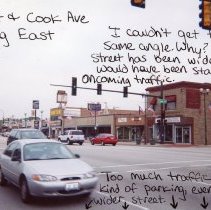 & Cook Ave
g East
I couldn't get t
same angle. Why?
street has been wid
would have been sta
oncoming traffic.
Too much traffic
kind of parking ever
wider street